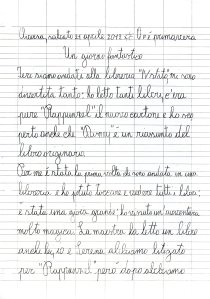 sabato 21 aprile 2012 è primavera
Un giorno fantastico
Ieri siamo andati alla libreria mi sono
divertita tanto: ho letto tanti libri, c'era
pure "Rapunzel" il nuovo cartone e ho sco
perto anche che "Disney" è un riassunto del
libro originario.
Per me è stata la prima volta che sono andata in una
libreria e ho potuto toccare e vedere tutti i libri;
è stata una gioia grande; ho vissuto un'avventura
molto magica. La maestra ha letto un libro
anche io, e Serena abbiamo litigato
per "Rapunzel" però dopo abbiamo